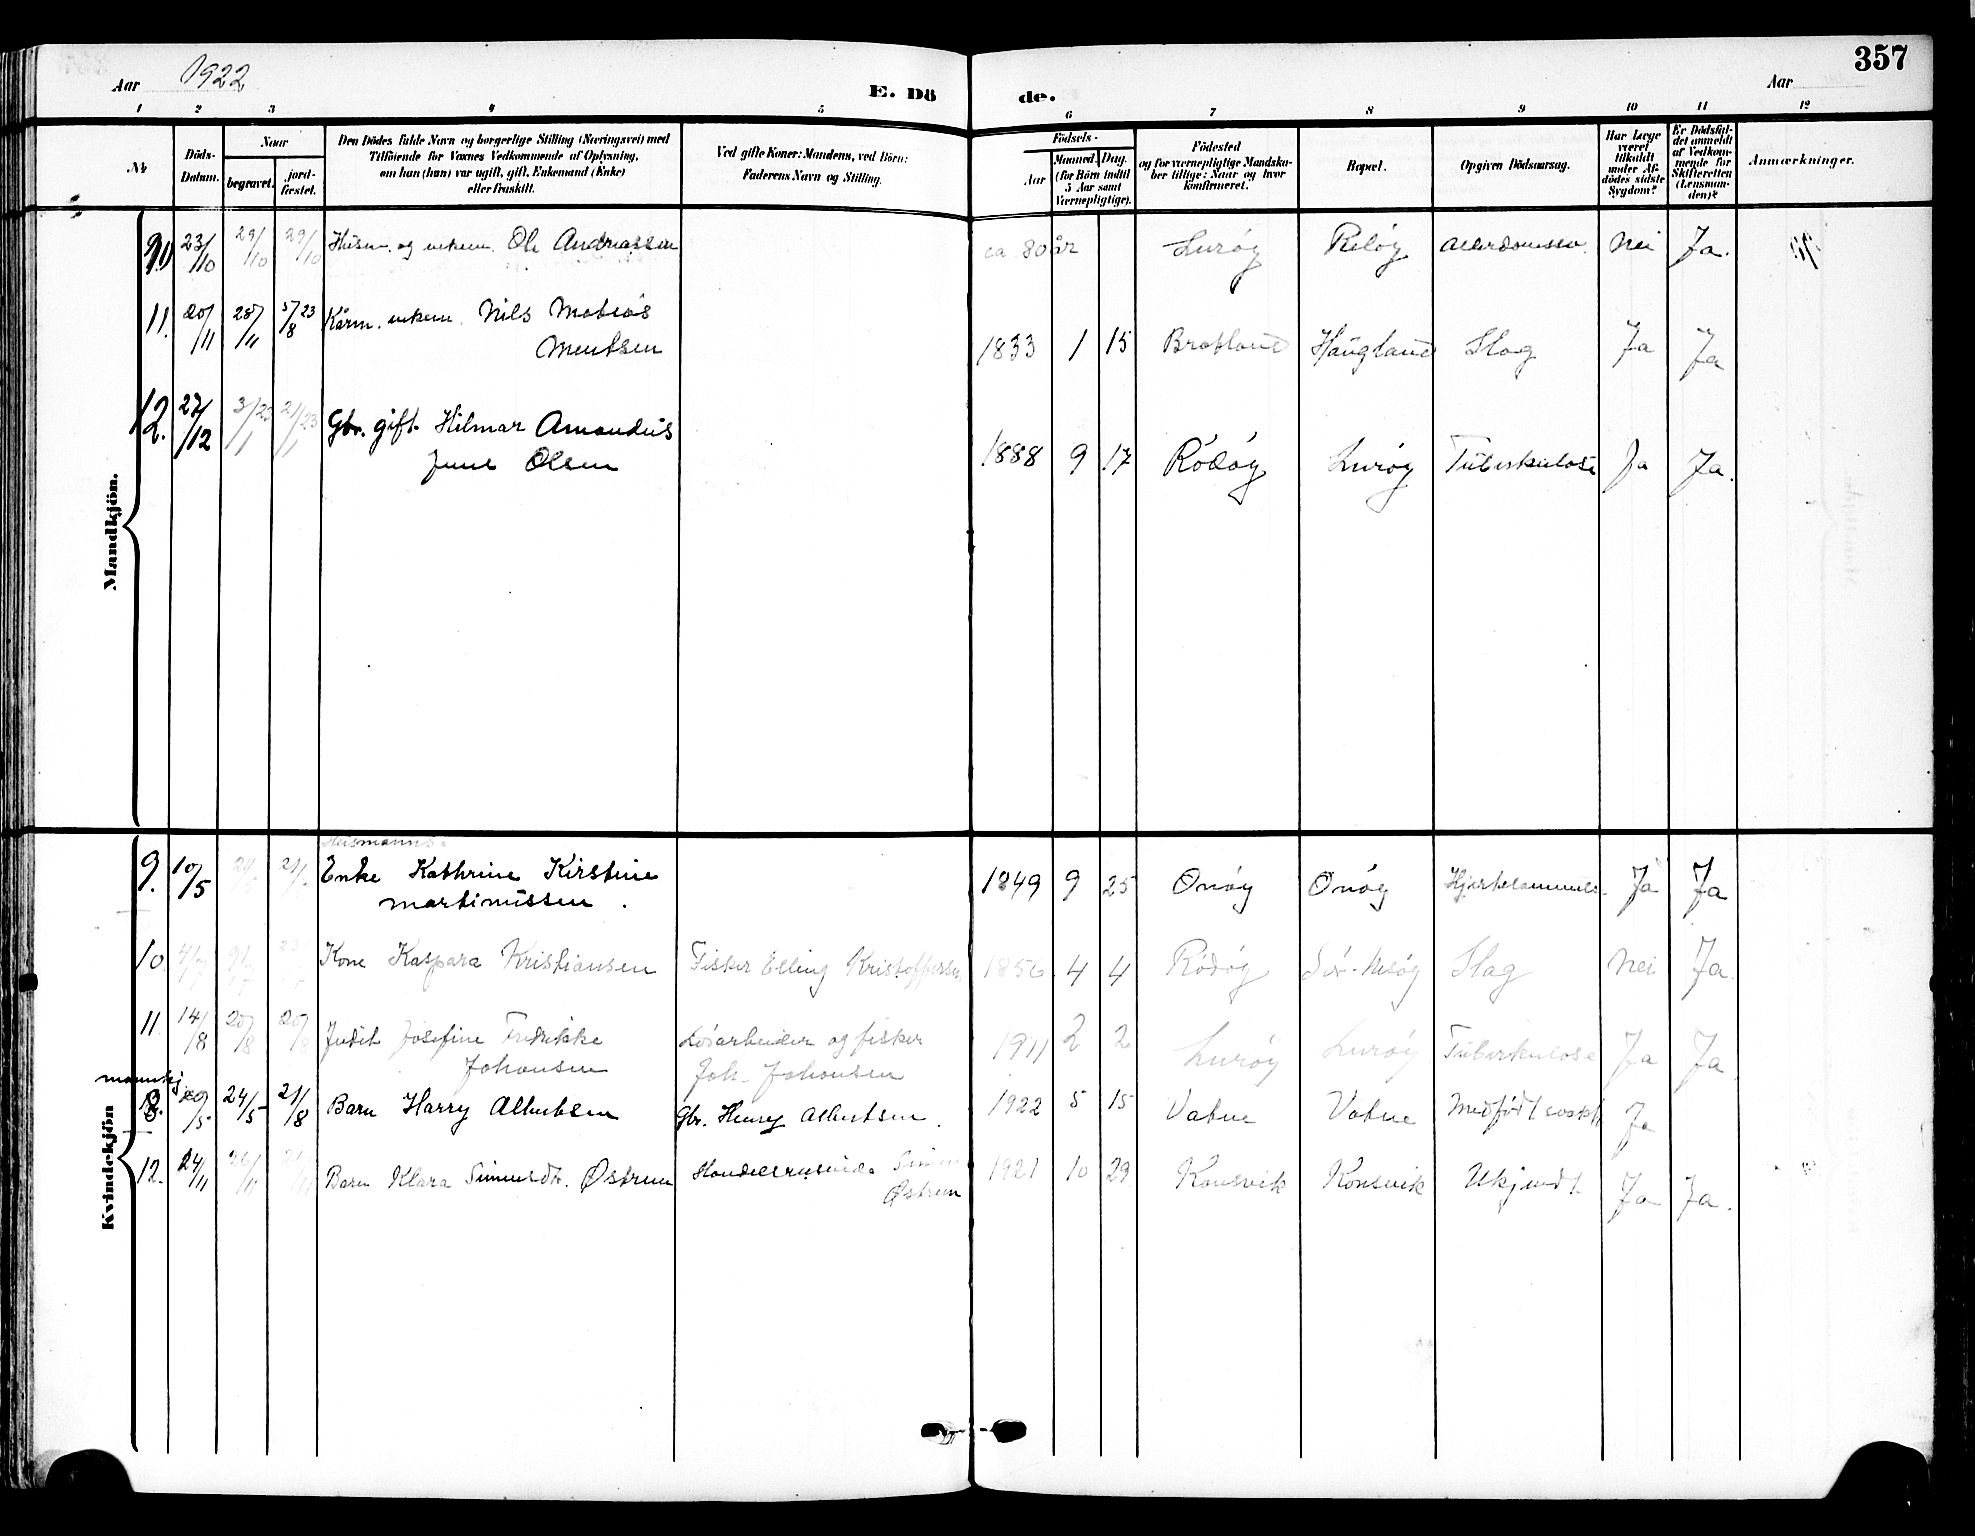 357
Aar 1922
E. Dö de.
Aar
1 2 3 4 5 6 7 8 9 10 11 12
Nr.
Döds-
Datum.
Naar
begravet.
jord-
fæstet.
Den Dödes fulde Navn og borgerlige Stilling (Næringsvei) med
Tilföiende for Voxnes Vedkommende af Oplysning,
om han (hun) var ugift, gift, Enkemand (Enke)
eller fraskilt.
Ved gifte Koner: Mandens, ved Börn:
Faderens Navn og Stilling.
Födsels-
Aar
Maaned. Dag.
(for Börn indtil
5 Aar samt
Værnepligtige).
Födested
og for værnepligtige Mandska-
ber tillige: Naar og hvor
konfirmeret.
Bopæl.
Opgiven Dödsaarsag.
Har Læge
været
tilkaldt
under Af-
dödes sidste
Sygdom?
Er Dödsfal-
det anmeldt
af Vedkom-
mende for
Skifteretten
(Lensman-
den)?
Anmærkninger.
Mandkjön.
10 23/10 29/10 29/10 Husm. og enkem. Ole Andreassen ca 80 år Luröy Nei Ja.
11. 20/11 28/11 5/8 23 Kårm. enkem. Nils Mathias
Mentsen 1833 1 15 Bratland Haugland Slag Ja Ja
12. 27/12 3/1 23 21/1 23 Gbr. gift. Hilmar Amandus
Juul Olsen 1888 9 17 Rödöy Luröy Tuberkulose Ja Ja.
Kvindekjön
Husmanns
9. 10/5 Enke Kathrine Kirstine
Martinussen. 1849 9 25 Onöy Onöy Ja Ja
10. Kone Kaspara Kristiansen Fisker Elling Kristoffersen 1856 4 4 Rödöy Sör-Nesöy Slag Nei Ja
11. 14/8 20/8 20/8 Judit Josefine Fredrikke Lösarbeider og fisker 1911 2 2 Luröy Luröy Tuberkulose Ja Ja
Johansen Joh. Johansen
mannkj.
8. 20/5 24/5 21/8 Barn Harry Albertsen Gbr. Henry Albertsen. 1922 5 15 Vatne Vatne Medfödt svakh. Ja
12. 24/11 Barn Klara Simensdt. Östrem 1921 10 29 Konsvik Konsvik Ukjendt. Ja Ja.
Östrem